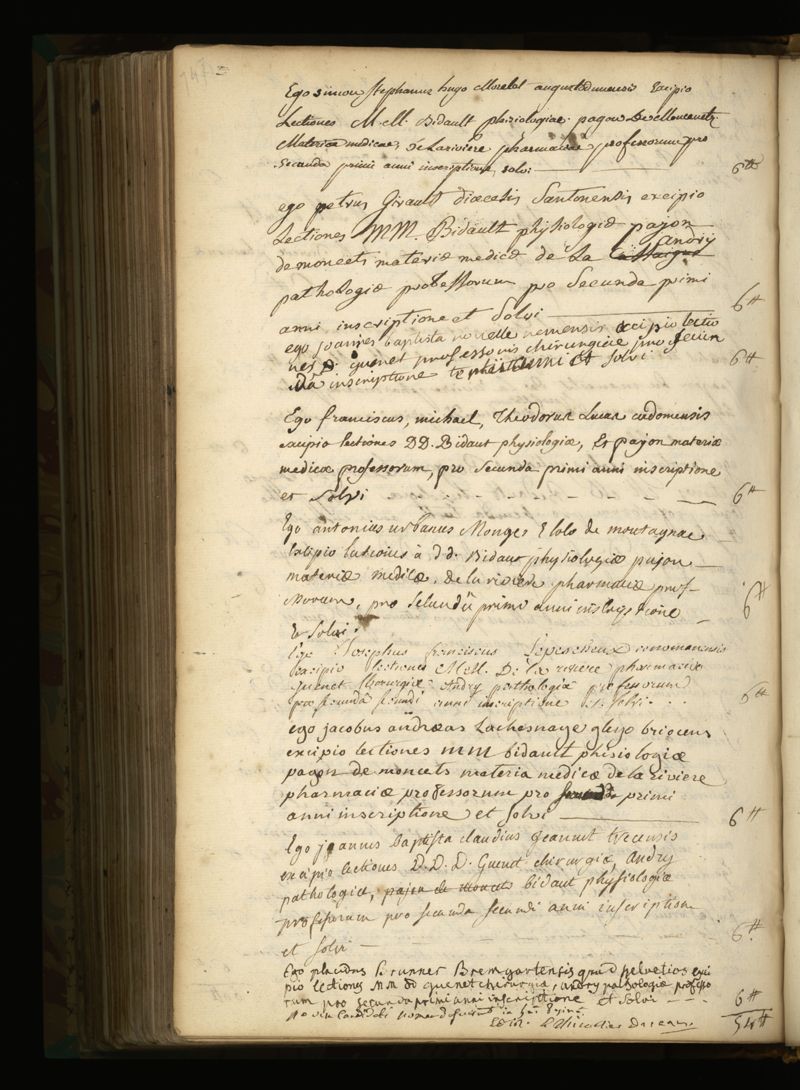 Ego simon stephanus hugo Morelot augustodunensis Excipio
Lectiones M.M. Bidault phisiologiae pajon de Moncets
Materiae medicae, De Lariviere pharmaciae professorum pro
Secunda primi anni inscriptione, solvi 6 ₶
ego petrus Girault diœcesis Santonensis excipio
Lectiones MM. Bidault physiologiæ pajon
de moncets materiæ medicæ de La
Lanory
pathologiæ professorum pro Secunda primi
anni inscriptione et Solvi 6 ₶
ego joannes baptista nouelle nemensis excipio lectio
nes D. guenet professoris chirurgiae pro secun
da inscriptione anni et solvi 6 ₶
Ego franciscus, michael, Theodorus Lucas cadomensis
excipio lectiones DD. Bidaut physiologiæ, Et pajon materiæ
medicæ professorum, pro secunda primi anni inscriptione
et solvi 6 ₶
Ego antonius urbanus Monges de montagnac
Excipio lectiones à d d. Bidaut physiologiæ pajon
materiæ medicæ, de la riviere pharmaciæ prof-
essorum, pro secunda primi anni inscriptione 6 ₶
Et Solvi
Ego Josephus franciscus cenomanensis
Excipio lectiones MM. De la riviere pharmaciæ
guenet chirurgiæ Andry pathologiæ professorum
pro secunda secundi anni inscriptione et solvi. 6 ₶
ego jacobus andreas Lachesnaye
excipio lectiones MM bidault phisiologiæ
pajon de moncets materia medicæ de la riviere
pharmaciæ professorum pro secunda primi
anni inscriptione et solvi 6 ₶
Ego joannes baptista claudius Jeannet trecensis
excipio lectiones D.D.D. Guenet chirurgiæ, Andry
pathologiæ, pajon de moncets bidaut physiologiæ
professorum pro secunda secundi anni inscriptione
et solvi 6 ₶
Ego placidus Brunner Bremgartensis apud helvetios exci
pio lectiones MM dd guenet chirurgiæ, andry pathologiæ professo
rum pro secunda primi anni inscriptione et solvi 6 ₶
54 ₶